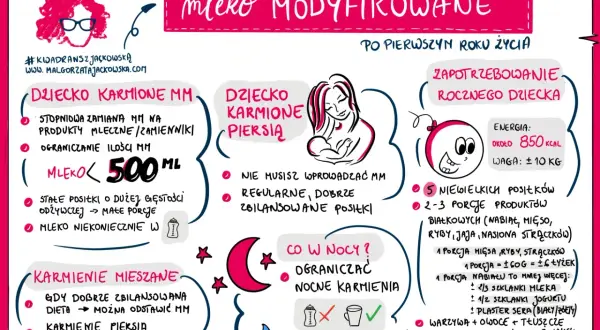 mleko MODYFIKOWANE
PO PIERWSZYM ROKU ŻYCIA
#KWADRANSZJACKOWSKĄ
WWW.MALGORZATAJACKOWSKA.COM
DZIECKO KARMIONE MM
STOPNIOWA ZAMIANA MM NA
PRODUKTY MLECZNE/ZAMIENNIKI
OGRANICZANIE ILOŚCI MM
MLEKO < 500 ML
STAŁE POSIŁKI O DUŻEJ GĘSTOŚCI
ODŻYWCZEJ → MAŁE PORCJE
MLEKO NIEKONIECZNIE W
KARMIENIE MIESZANE
GDY DOBRZE ZBILANSOWANA
DIETA → MOŻNA ODSTAWIĆ MM
KARMIENIE PIERSIĄ
DZIECKO
KARMIONE
PIERSIĄ
NIE MUSISZ WPROWADZAĆ MM
REGULARNE, DOBRZE
ZBILANSOWANE POSIŁKI
CO W NOCY?
OGRANICZAĆ
NOCNE KARMIENIA
ZAPOTRZEBOWANIE
ROCZNEGO DZIECKA
ENERGIA:
OKOŁO 850 KCAL
WAGA: ± 10 KG
5 NIEWIELKICH POSIŁKÓW
2-3 PORCJE PRODUKTÓW
BIAŁKOWYCH (NABIAŁ, MIĘSO,
RYBY, JAJA, NASIONA STRĄCZKÓW)
1 PORCJA MIĘSA, RYBY, STRĄCZKÓW
1 PORCJA = ±60G = ±6 ŁYŻEK
1 PORCJA NABIAŁU TO MNIEJ WIĘCEJ:
± 2/3 SZKLANKI MLEKA
± 1/2 SZKLANKI JOGURTU
± PLASTER SERA (BIAŁY/ŻÓŁTY)
WARZYWA + OWOCE + TŁUSZCZE